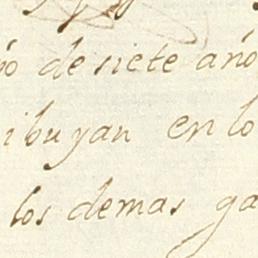 de siete año
ibuyan en lo
los demas ga